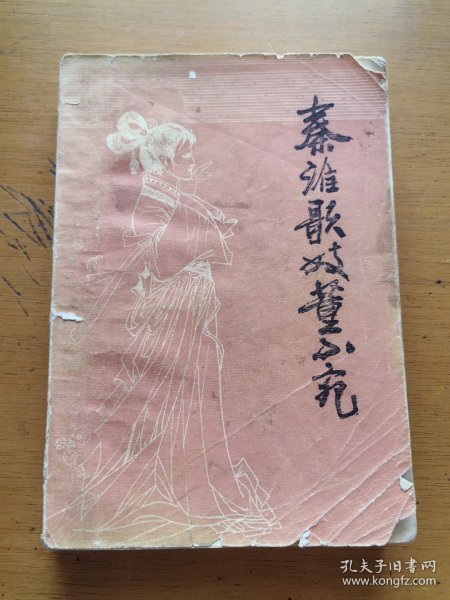 秦淮歌妓董小宛
孔夫子旧书网
www.kongfz.com